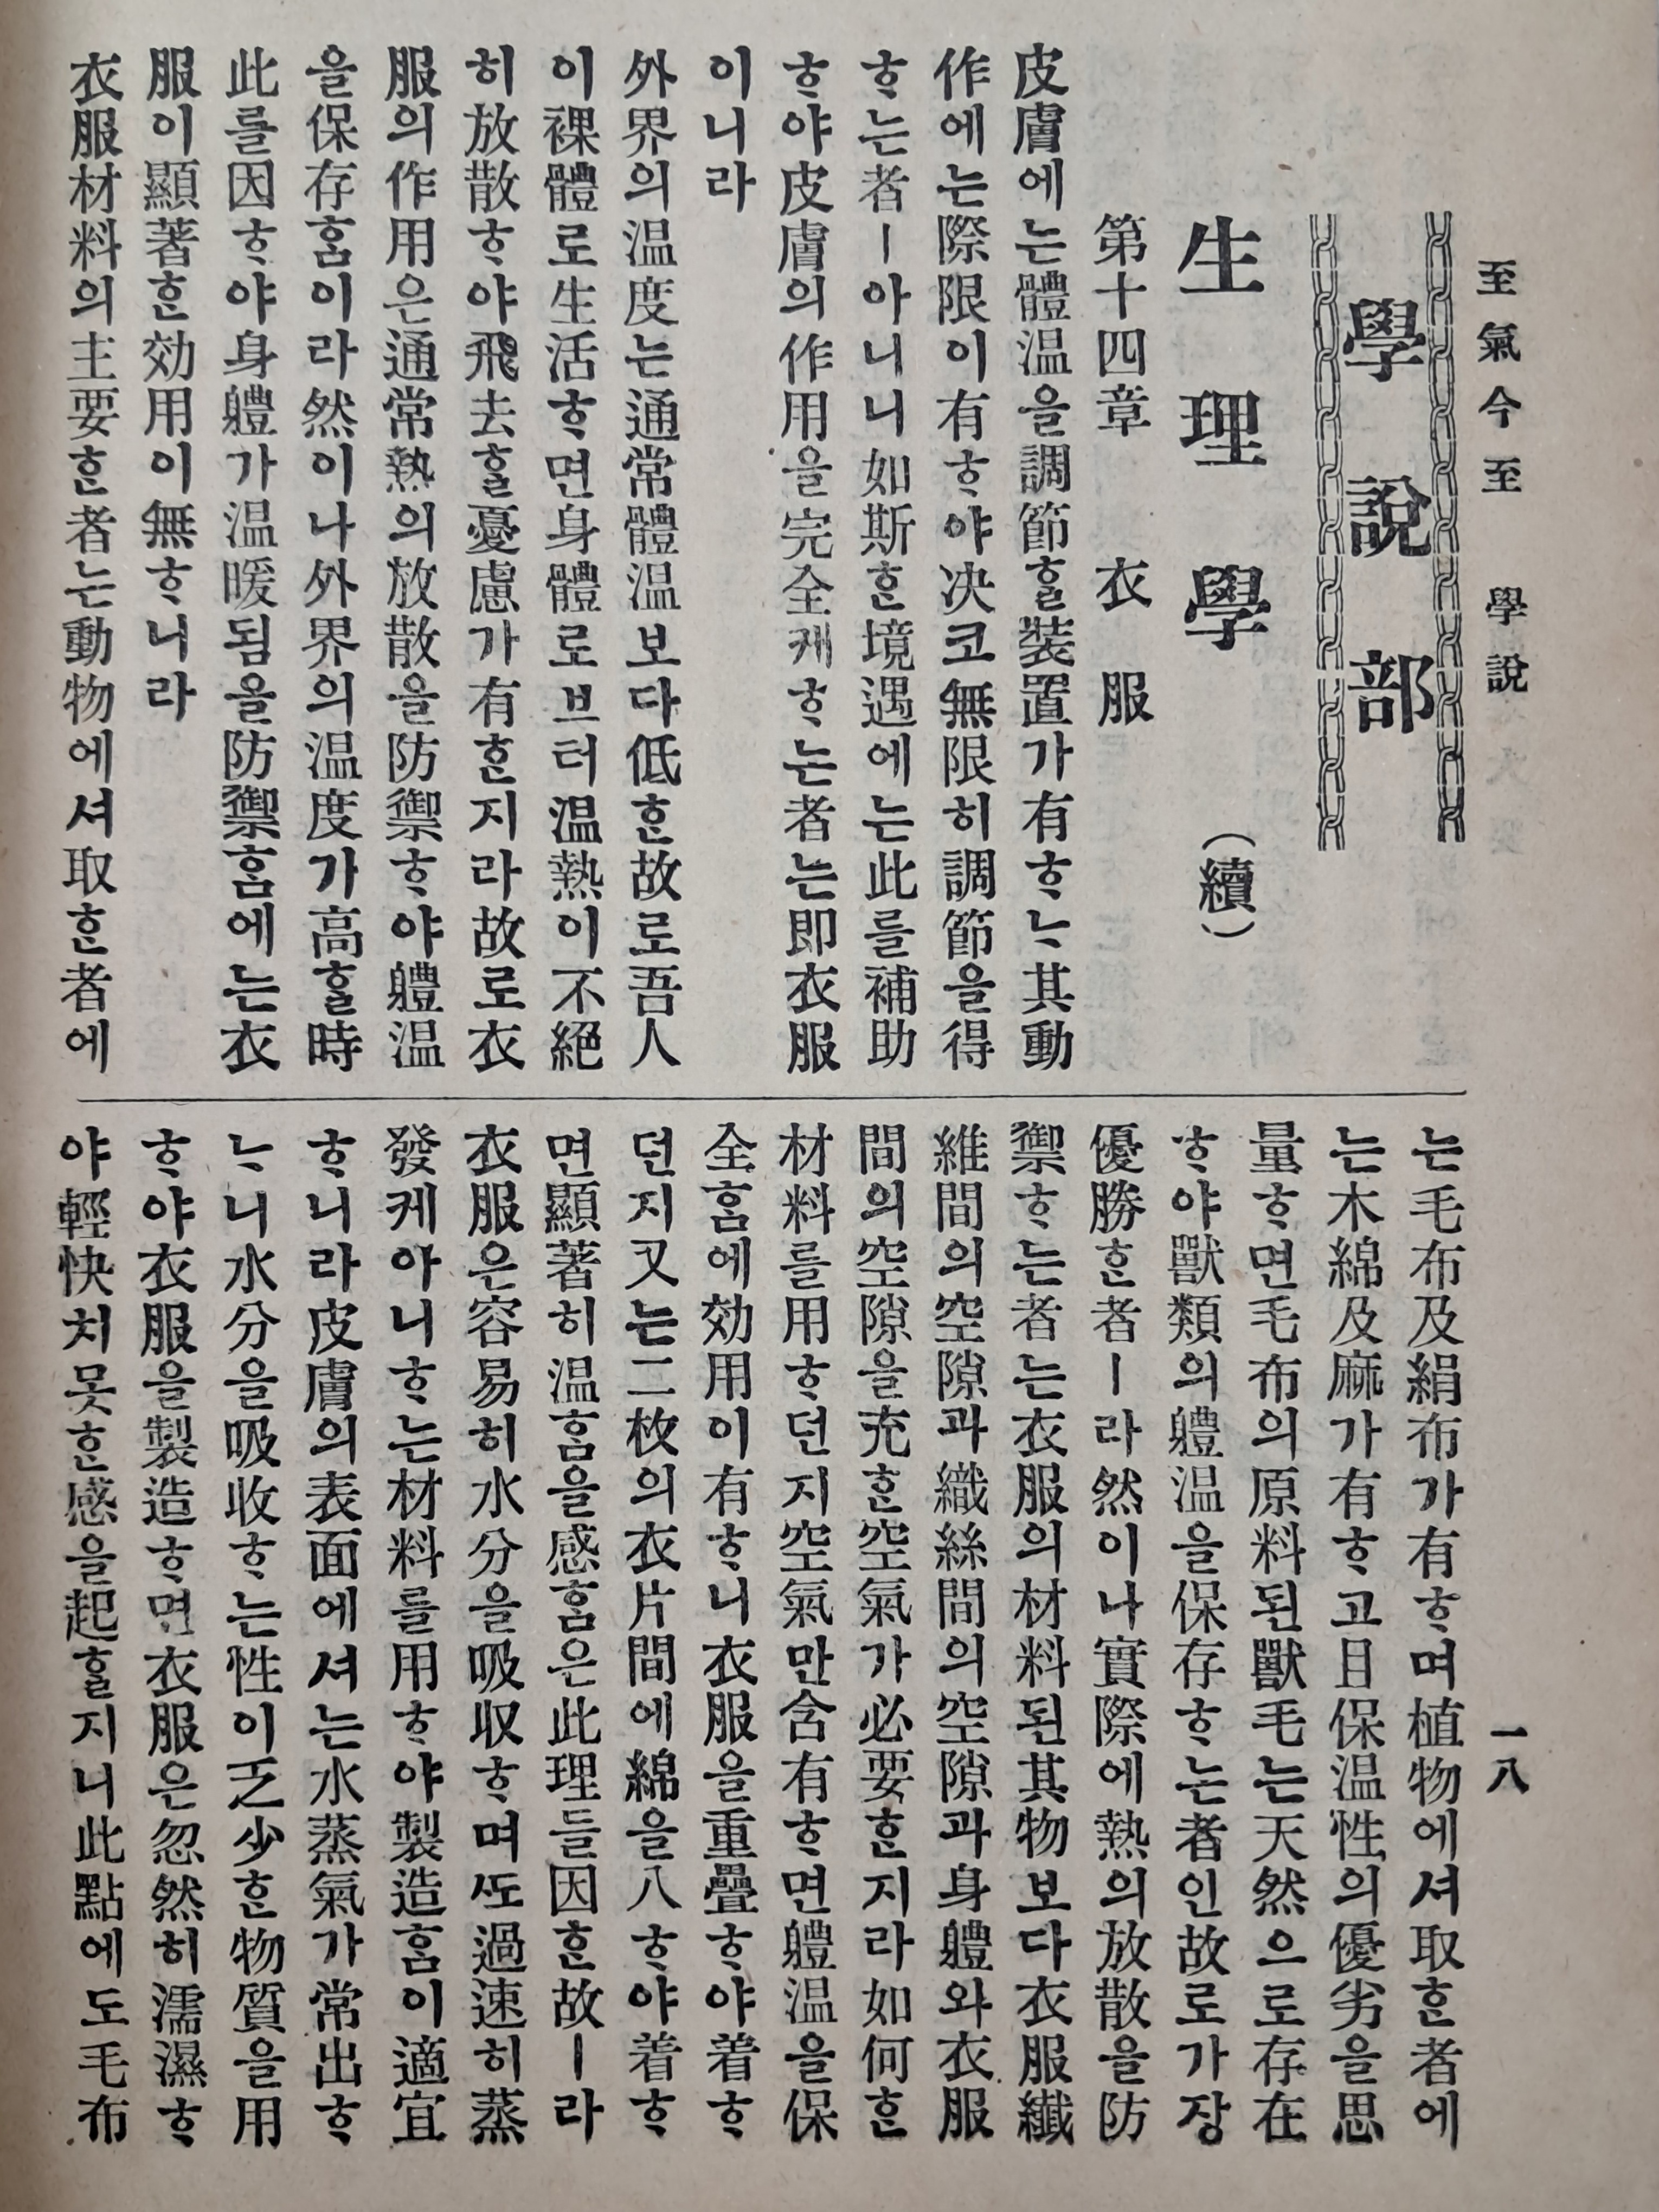 至氣今至　學說
一八
學說部
生理學　(續)
第十四章　衣服
皮膚에는體溫을調節ᄒᆞᆯ裝置가有ᄒᆞᄂᆞ其動
作에는際限이有ᄒᆞ야決코無限히調節을得
ᄒᆞ는者ㅣ아니니如斯ᄒᆞᆫ境遇에는此를補助
ᄒᆞ야皮膚의作用을完全케ᄒᆞ는者는即衣服
이니라
外界의溫度는通常體溫보다低ᄒᆞᆫ故로吾人
이裸體로生活ᄒᆞ면身體로브터溫熱이不絕
히放散ᄒᆞ야飛去ᄒᆞᆯ憂慮가有ᄒᆞᆫ지라故로衣
服의作用은通常熱의放散을防禦ᄒᆞ야軆溫
을保存홈이라然이나外界의溫度가高ᄒᆞᆯ時
此를因ᄒᆞ야身軆가溫暖됨을防禦홈에는衣
服이顯著ᄒᆞᆫ効用이無ᄒᆞ니라
衣服材料의主要ᄒᆞᆫ者는動物에셔取ᄒᆞᆫ者에
는毛布及絹布가有ᄒᆞ며植物에셔取ᄒᆞᆫ者에
는木綿及麻가有ᄒᆞ고且保溫性의優劣을思
量ᄒᆞ면毛布의原料된獸毛는天然으로存在
ᄒᆞ야獸類의軆溫을保存ᄒᆞ는者인故로가장
優勝ᄒᆞᆫ者ㅣ라然이나實際에熱의放散을防
禦ᄒᆞ는者는衣服의材料된其物보다衣服纖
維間의空隙과織絲間의空隙과身軆와衣服
間의空隙을充ᄒᆞᆫ空氣가必要ᄒᆞᆫ지라如何ᄒᆞᆫ
材料를用ᄒᆞ던지空氣만含有ᄒᆞ면軆溫을保
全홈에効用이有ᄒᆞ니衣服을重疊ᄒᆞ야着ᄒᆞ
던지又는二枚의衣片間에綿을入ᄒᆞ야着ᄒᆞ
면顯著히溫홈을感홈은此理들因ᄒᆞᆫ故ㅣ라
衣服은容易히水分을吸収ᄒᆞ며ᄯᅩ過速히蒸
發케아니ᄒᆞ는材料를用ᄒᆞ야製造홈이適宜
ᄒᆞ니라皮膚의表面에셔는水蒸氣가常出ᄒᆞ
ᄂᆞ니水分을吸收ᄒᆞ는性이乏少ᄒᆞᆫ物質을用
ᄒᆞ야衣服을製造ᄒᆞ면衣服은忽然히濡濕ᄒᆞ
야輕快치못ᄒᆞᆫ感을起ᄒᆞᆯ지니此點에도毛布